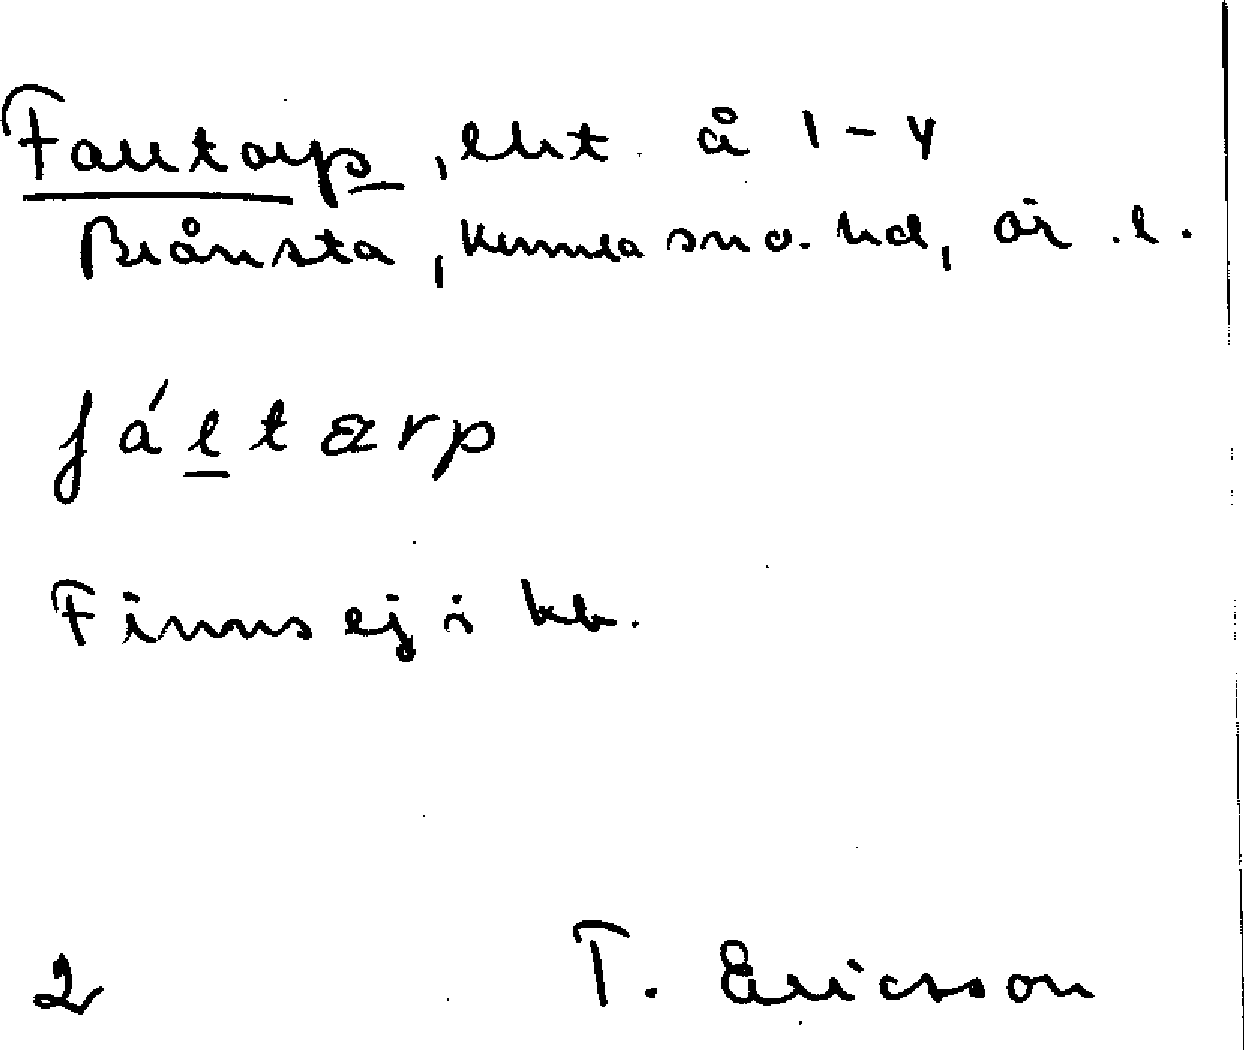 Faltorp, lht. å 1-4
Brånsta, Kumla sn o. hd, Ör. l.
fáltarp
Finns ej i kb.
2 T. Ericsson